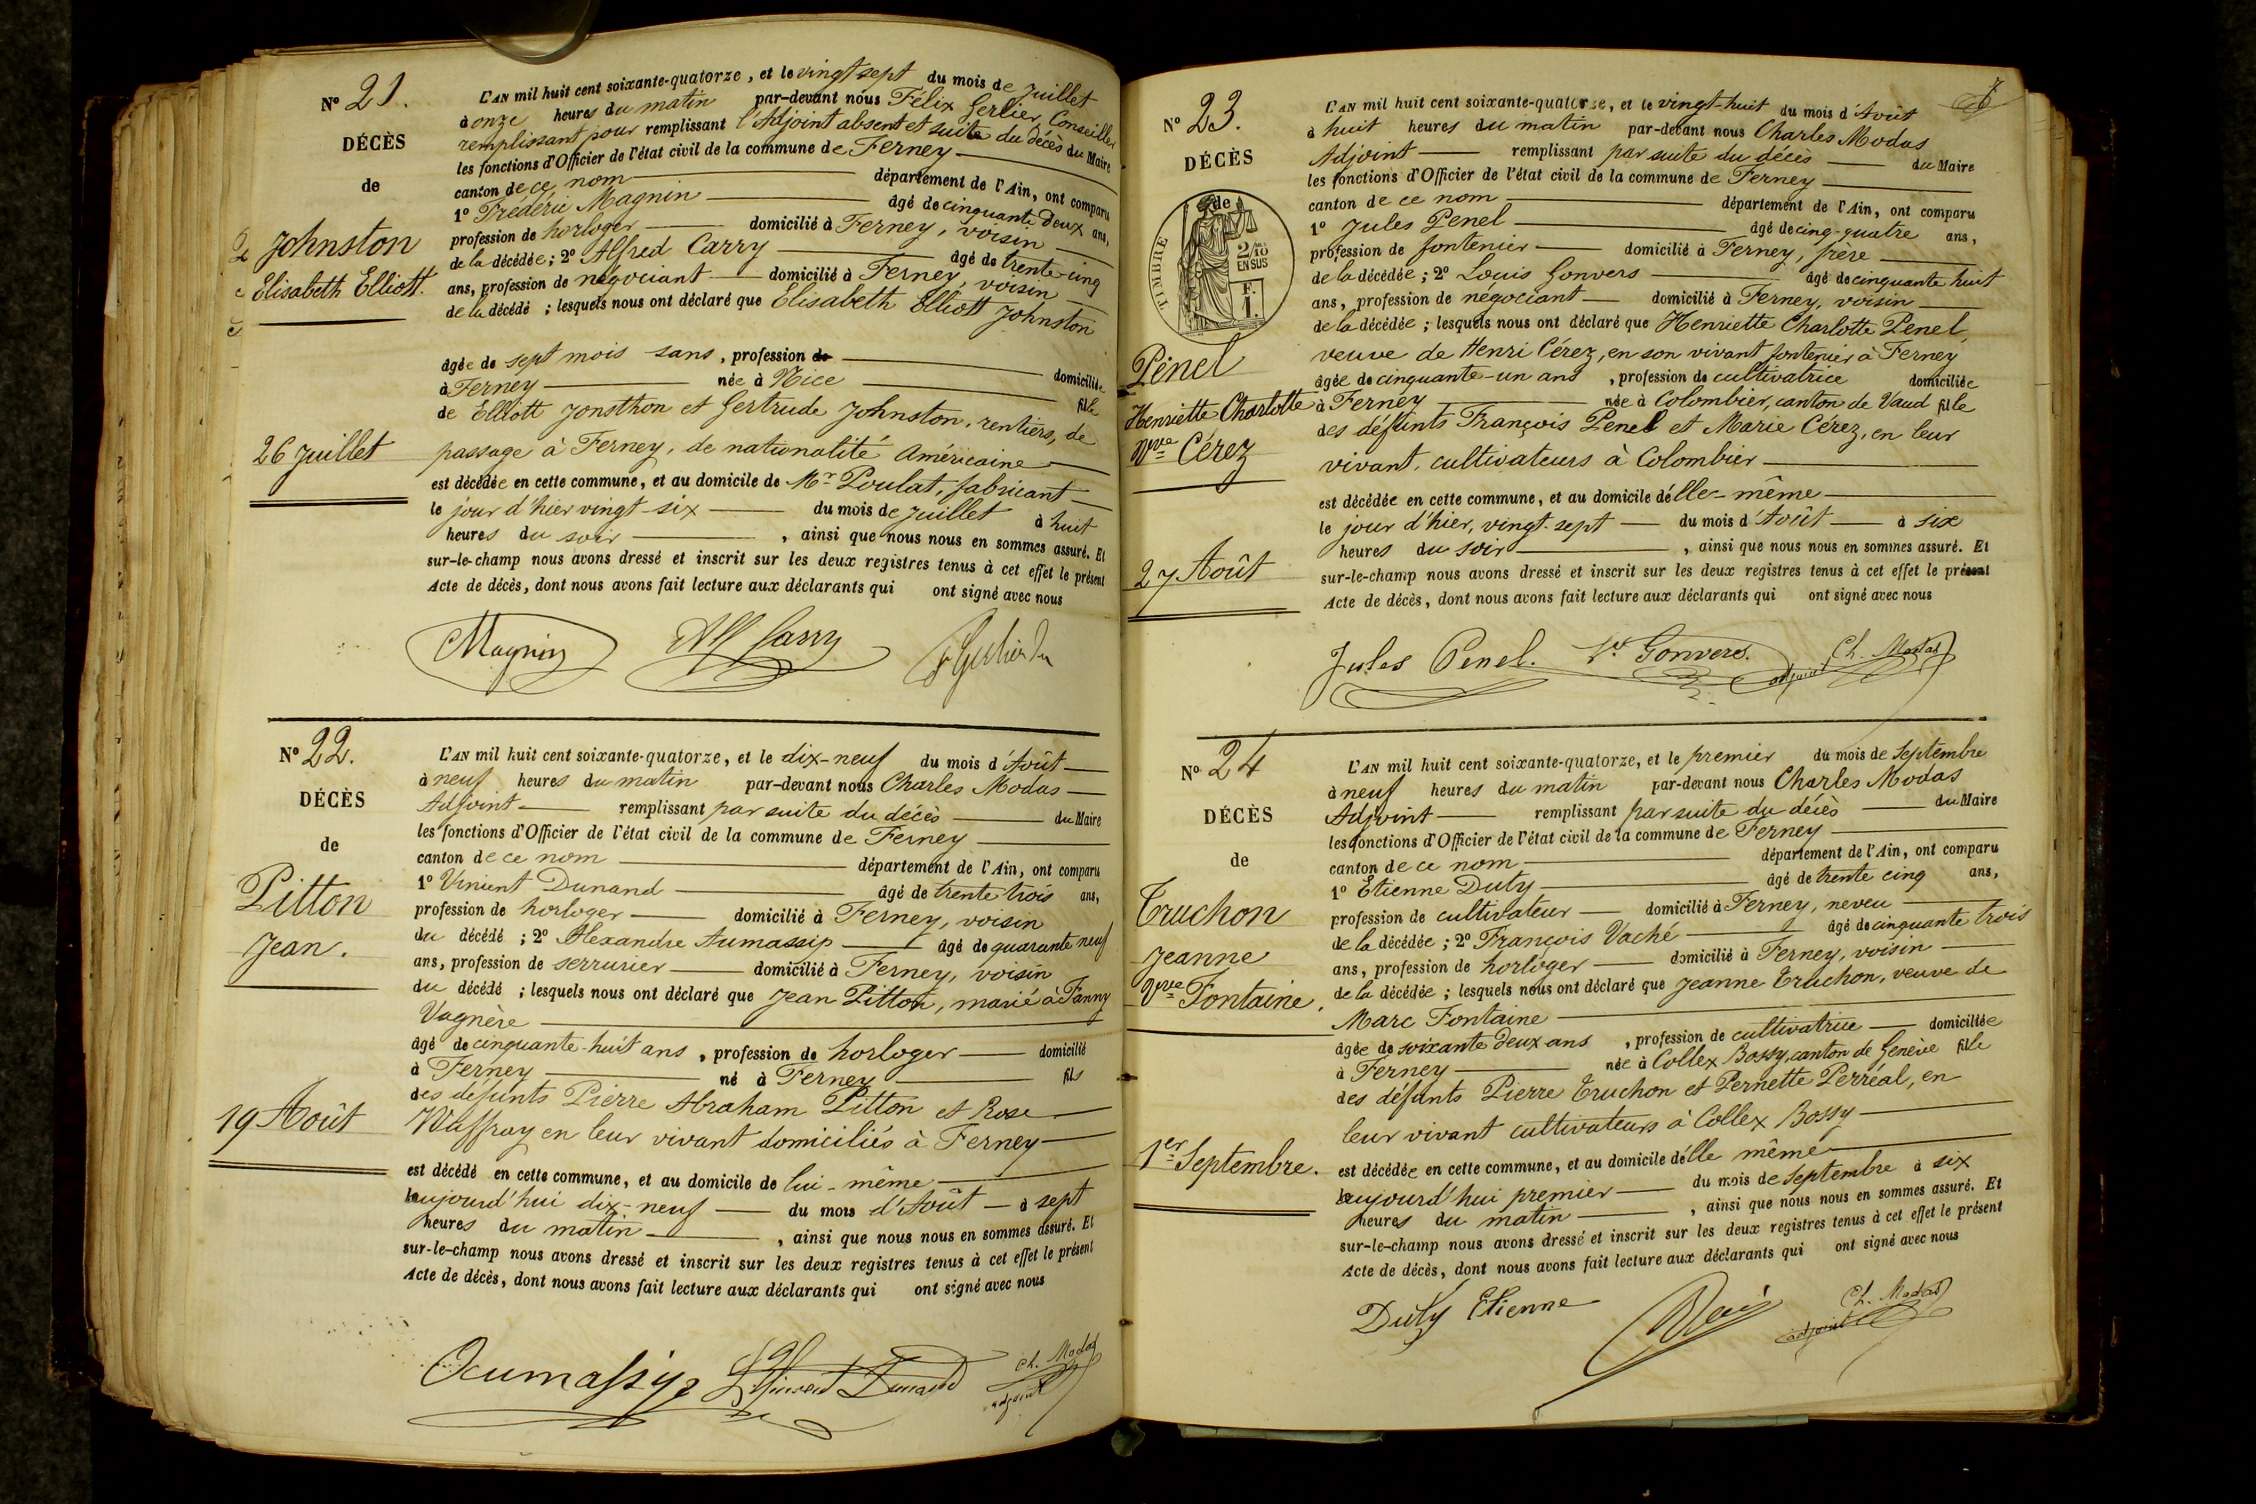 Nº 21.
DÉCÈS
de
Johnston
Elisabeth Elliott.
26 Juillet
L'AN mil huit cent soixante-quatorze, et le vingt sept du mois de Juillet
à onze heures du matin par-devant nous Félix Gerlier, Conseiller
remplissant pour remplissant l'Adjoint absent et suite du décès du Maire
les fonctions d'Officier de l'état civil de la commune de Ferney
canton de ce nom département de l'Ain, ont comparu
1º Frédéric Magnin âgé de cinquante deux ans,
profession de horloger domicilié à Ferney, voisin
de la décédée; 2º Alfred Carry âgé de trente-cinq
ans, profession de négociant domicilié à Ferney, voisin
de la décédé ; lesquels nous ont déclaré que Elisabeth Elliott Johnston
âgée de sept mois sans, profession de domiciliée
à Ferney née à Nice fille
de Elliott Jonsthon et Gertrude Johnston, rentiers, de
passage à Ferney, de nationalité Américaine
est décédée en cette commune, et au domicile de Mr Poulat, fabricant
le jour d'hier vingt-six du mois de Juillet à huit
heures du soir , ainsi que nous nous en sommes assuré. Et
sur-le-champ nous avons dressé et inscrit sur les deux registres tenus à cet effet le présent
Acte de décès, dont nous avons fait lecture aux déclarants qui ont signé avec nous
Magnin Alf Carry
Nº 22.
DÉCÈS
de
Pitton
Jean.
19 Août
L'AN mil huit cent soixante-quatorze, et le dix-neuf du mois d'Août
à neuf heures du matin par-devant nous Charles Modas
Adjoint remplissant par suite du décès du Maire
les fonctions d'Officier de l'état civil de la commune de Ferney
canton de ce nom département de l'Ain, ont comparu
1º Vincent Dunand âgé de trente trois ans,
profession de horloger domicilié à Ferney, voisin
du décédé ; 2º Alexandre Aumassip âgé de quarante neuf
ans, profession de serrurier domicilié à Ferney, voisin
du décédé ; lesquels nous ont déclaré que Jean Pitton, marié à Fanny
Vagnère
âgé de cinquante-huit ans, profession de horloger domicilié
à Ferney né à Ferney fils
des défunts Pierre Abraham Pitton et Rose
Waffray en leur vivant domiciliés à Ferney
est décédé en cette commune, et au domicile de lui-même
aujourd'hui dix-neuf du mois d'Août à sept
heures du matin , ainsi que nous nous en sommes assuré. Et
sur-le-champ nous avons dressé et inscrit sur les deux registres tenus à cet effet le présent
Acte de décès, dont nous avons fait lecture aux déclarants qui ont signé avec nous
Aumassip Vincent Dunand Ch. Modas
adjoint
7
Nº 23.
DÉCÈS
de
TIMBRE
2/10
EN SUS
F.
1.
Pénel
Henriette Charlotte
Vve Cérez
27 Août
L'AN mil huit cent soixante-quatorze, et le vingt-huit du mois d'Août
à huit heures du matin par-devant nous Charles Modas
Adjoint remplissant par suite du décès du Maire
les fonctions d'Officier de l'état civil de la commune de Ferney
canton de ce nom département de l'Ain, ont comparu
1º Jules Penel âgé de cinq-quatre ans,
profession de fontenier domicilié à Ferney, frère
de la décédée ; 2º Louis Gonvers âgé de cinquante huit
ans, profession de négociant domicilié à Ferney, voisin
de la décédée ; lesquels nous ont déclaré que Henriette Charlotte Penel,
veuve de Henri Cérez, en son vivant fontenier à Ferney
âgée de cinquante-un ans , profession de cultivatrice domiciliée
à Ferney née à Colombier, canton de Vaud fille
des défunts François Penel et Marie Cérez, en leur
vivant, cultivateurs à Colombier
est décédée en cette commune, et au domicile d'élle-même
le jour d'hier, vingt-sept du mois d'Août à six
heures du soir , ainsi que nous nous en sommes assuré. Et
sur-le-champ nous avons dressé et inscrit sur les deux registres tenus à cet effet le présent
Acte de décès, dont nous avons fait lecture aux déclarants qui ont signé avec nous
Jules Penel. Ls Gonvers. Ch. Modas
adjoint
Nº 24
DÉCÈS
de
Truchon
Jeanne
Vve Fontaine.
1er Septembre.
L'AN mil huit cent soixante-quatorze, et le premier du mois de Septembre
à neuf heures du matin par-devant nous Charles Modas
Adjoint remplissant par suite du décès du Maire
les fonctions d'Officier de l'état civil de la commune de Ferney
canton de ce nom département de l'Ain, ont comparu
1º Etienne Duty âgé de trente cinq ans,
profession de cultivateur domicilié à Ferney, neveu
de la décédée ; 2º François Vaché âgé de cinquante trois
ans, profession de horloger domicilié à Ferney, voisin
de la décédée ; lesquels nous ont déclaré que Jeanne Truchon, veuve de
Marc Fontaine
âgée de soixante deux ans , profession de cultivatrice domiciliée
à Ferney née à Collex Bossy, canton de Genève fille
des défunts Pierre Truchon et Pernette Perréal, en
leur vivant cultivateurs à Collex Bossy
est décédée en cette commune, et au domicile d'élle même
aujourd'hui premier du mois de Septembre à six
heures du matin , ainsi que nous nous en sommes assuré. Et
sur-le-champ nous avons dressé et inscrit sur les deux registres tenus à cet effet le présent
Acte de décès, dont nous avons fait lecture aux déclarants qui ont signé avec nous
Duty Etienne Ch. Modas
adjoint